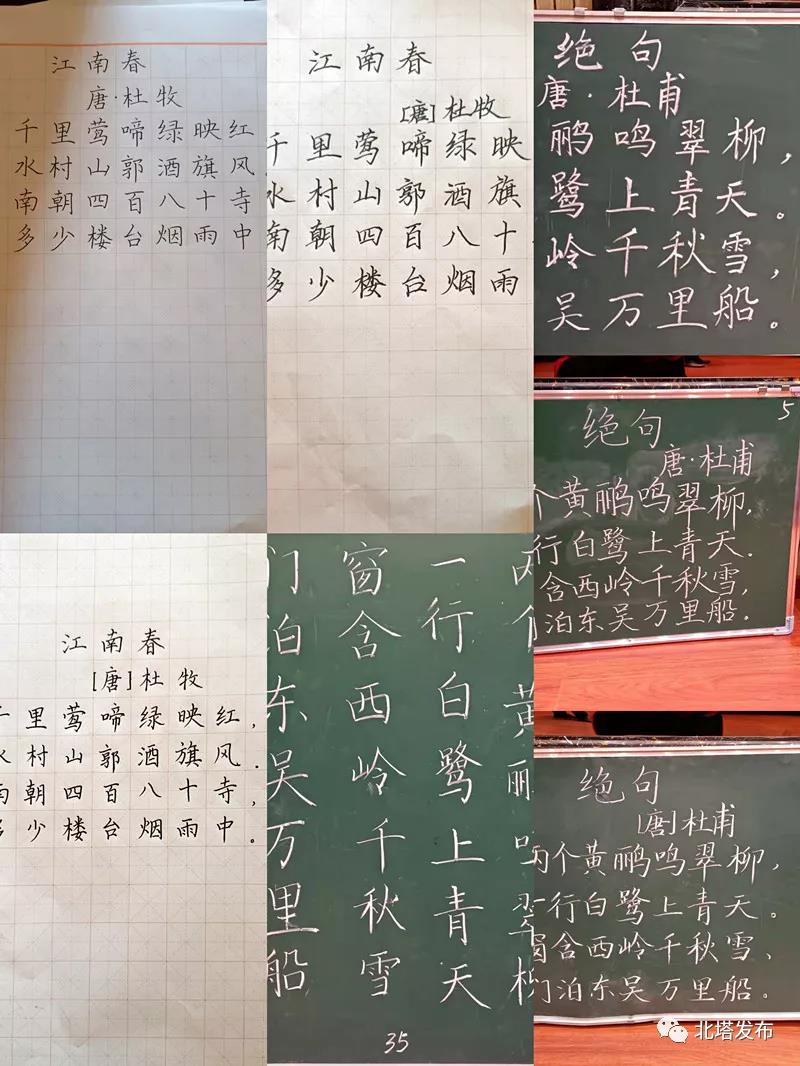 江南春
唐·杜牧
千里莺啼绿映红
水村山郭酒旗风
南朝四百八十寺
多少楼台烟雨中
江南春
[唐]杜牧
千里莺啼绿映
水村山郭酒旗
南朝四百八十
多少楼台烟雨
绝句
唐·杜甫
鹂鸣翠柳，
鹭上青天。
岭千秋雪，
吴万里船。
5
绝句
唐·杜甫
个黄鹂鸣翠柳，
行白鹭上青天.
含西岭千秋雪，
泊东吴万里船.
江南春
[唐]杜牧
千里莺啼绿映红，
水村山郭酒旗风.
南朝四百八十寺，
多少楼台烟雨中。
两个黄鹂鸣翠柳
一行白鹭上青天
窗含西岭千秋雪
门泊东吴万里船
35
绝句
[唐]杜甫
两个黄鹂鸣翠柳，
一行白鹭上青天。
窗含西岭千秋雪、
门泊东吴万里船。
北塔发布